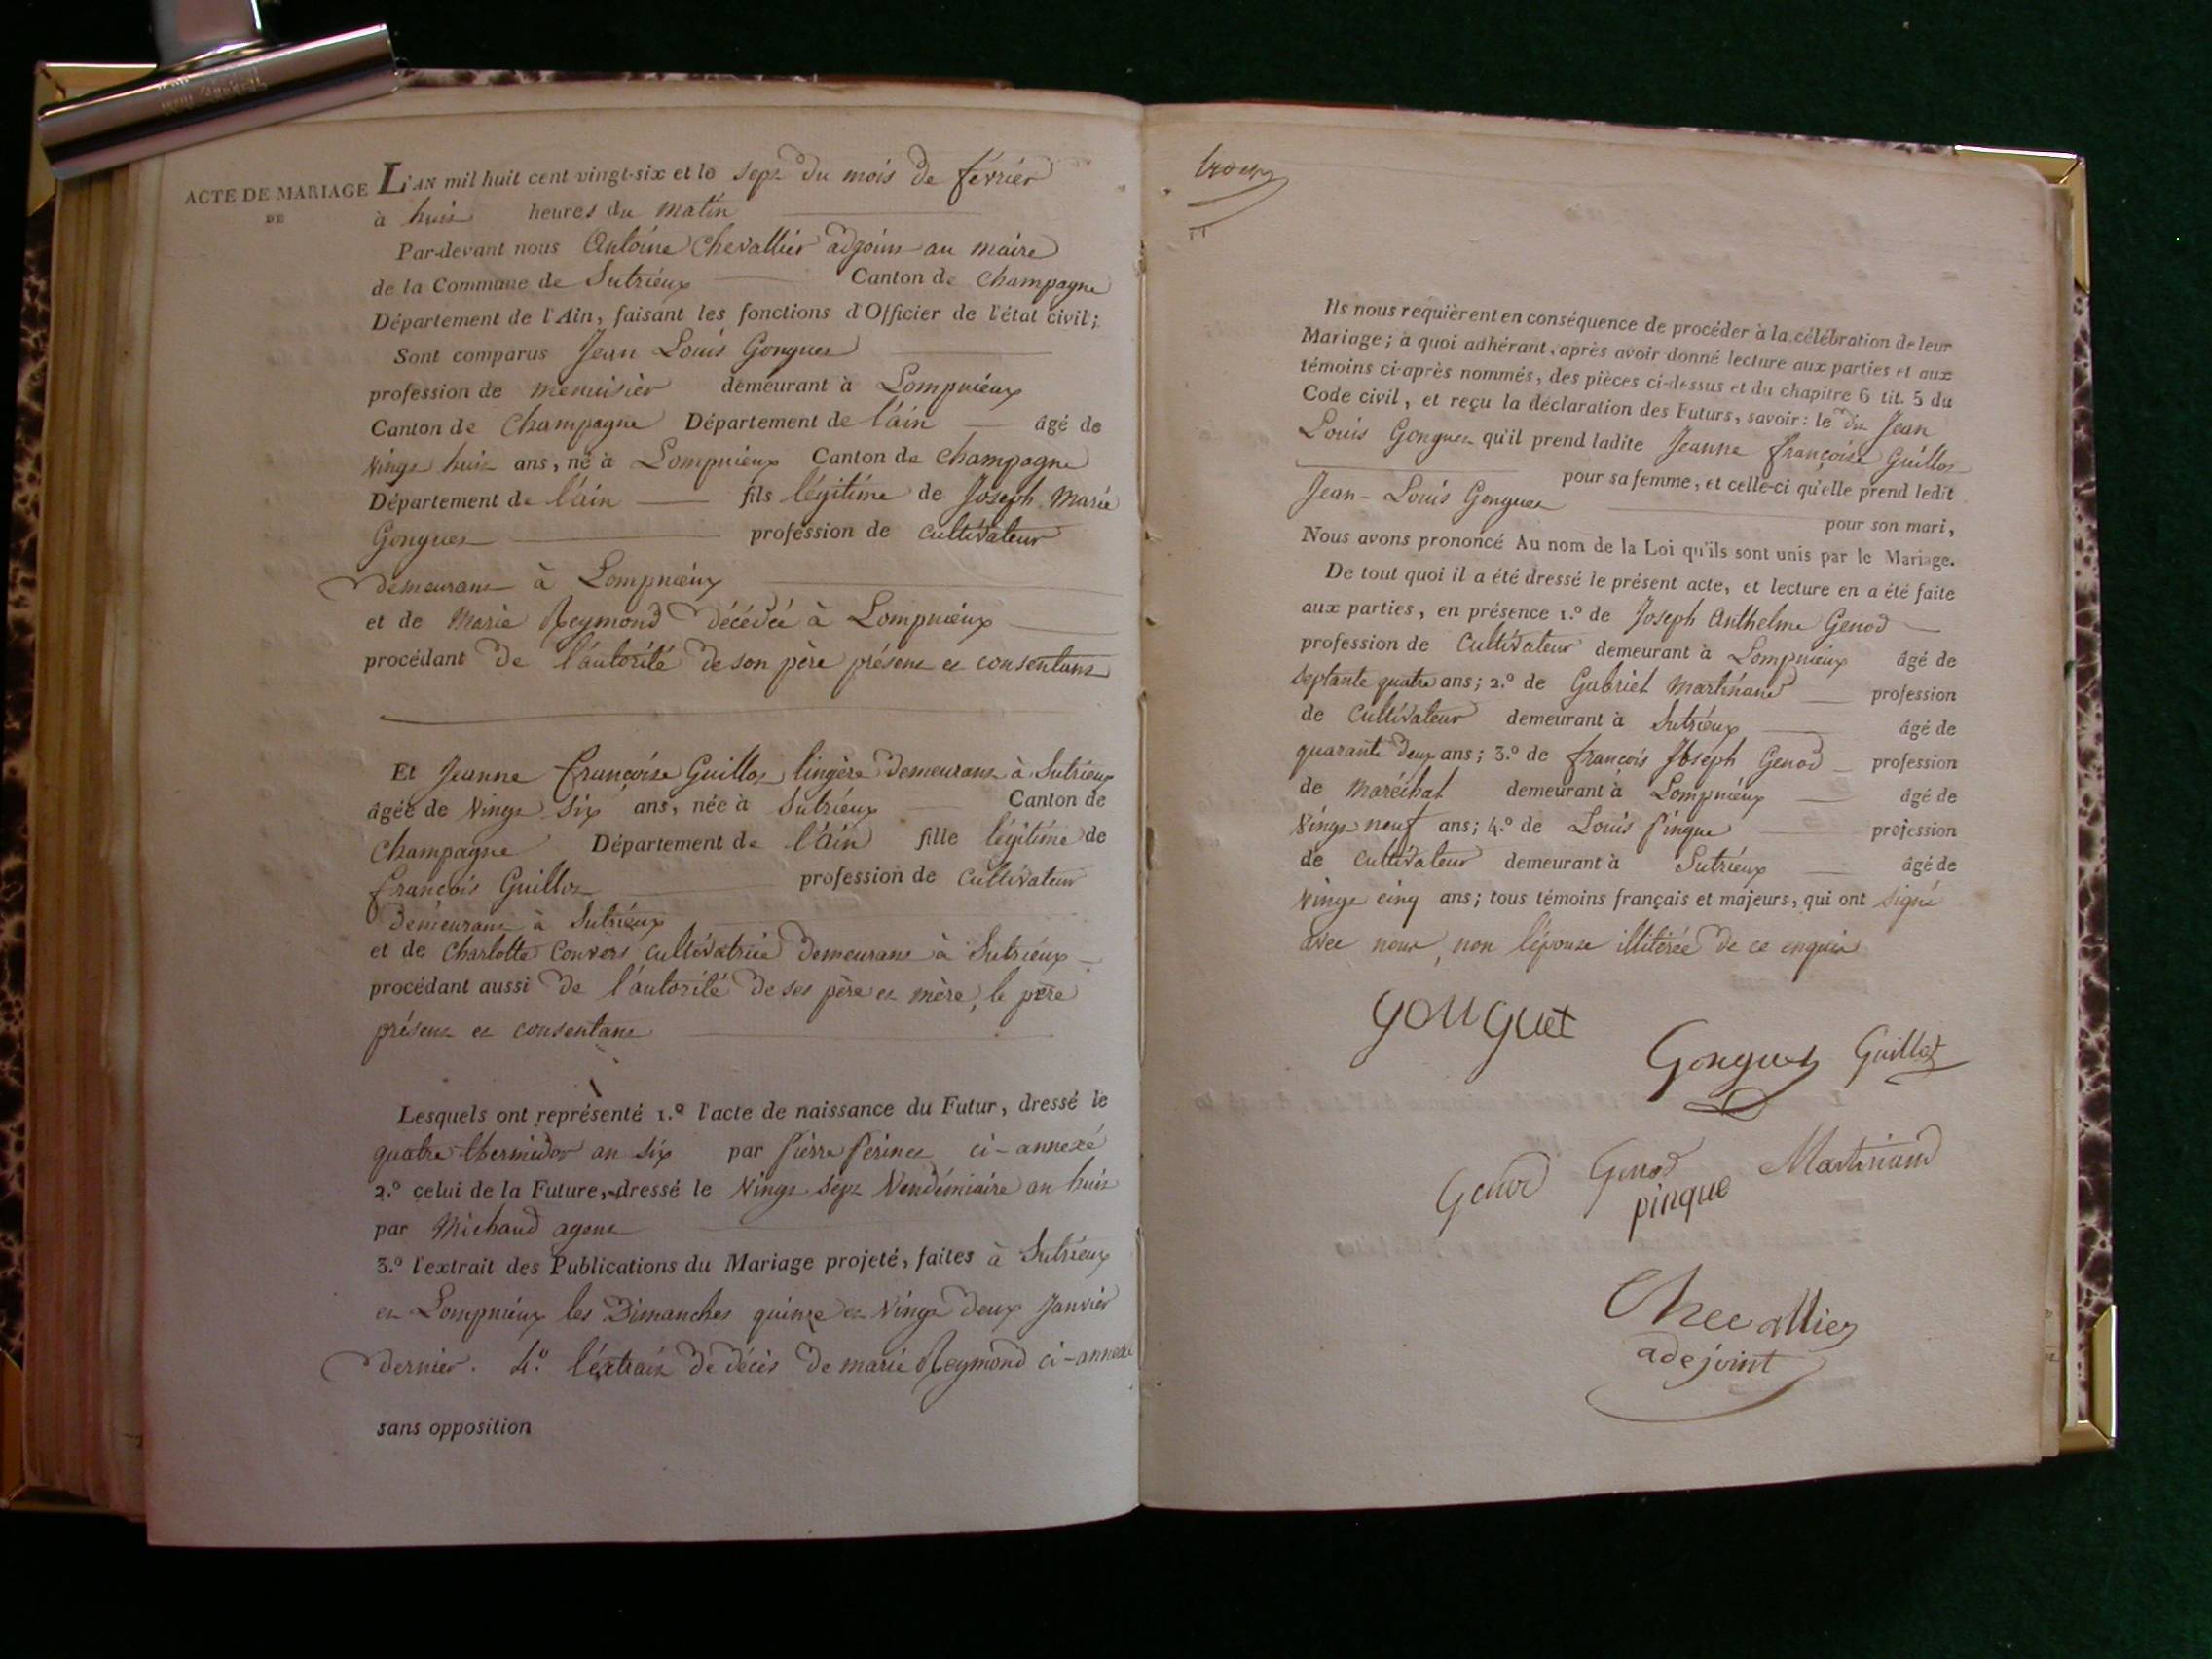 ACTE DE MARIAGE
DE
L'AN mil huit cent vingt-six et le sept du mois de février
à huit heures du matin
Par-devant nous Antoine Chevallier adjoint au maire
de la Commune de Sutrieux Canton de Champagne
Département de l'Ain, faisant les fonctions d'Officier de l'état civil;
Sont comparus Jean Louis Gonguet
profession de menuisier demeurant à Lompnieux
Canton de Champagne Département de l'ain âgé de
vingt huit ans, né à Lompnieux Canton de Champagne
Département de l'ain fils légitime de Joseph Marie
Gonguet profession de cultivateur
demeurant à Lompnieux
et de Marie Reymond décédée à Lompnieux
procédant de l'autorité de son père présent et consentant
Et Jeanne françoise Guillot lingère demeurant à Sutrieux
âgée de vingt six ans, née à Sutrieux Canton de
Champagne Département de l'ain fille légitime de
françois Guillot profession de cultivateur
demeurant à Sutrieux
et de Charlotte Convers cultivatrice demeurant à Sutrieux
procédant aussi de l'autorité de ses père et mère, le père
présent et consentant
Lesquels ont représenté 1.º l'acte de naissance du Futur, dressé le
quatre thermidor an six par Pierre Perinet ci-annexé
2.º celui de la Future, dressé le vingt sept Vendémiaire an huit
par Michaud agent
3.º l'extrait des Publications du Mariage projeté, faites à Sutrieux
et Lompnieux les Dimanches quinze et vingt deux Janvier
dernier. 4.º l'extrait de décès de marie Reymond ci-annexé
sans opposition
Ils nous requièrent en conséquence de procéder à la célébration de leur
Mariage; à quoi adhérant, après avoir donné lecture aux parties et aux
témoins ci-après nommés, des pièces ci-dessus et du chapitre 6 tit. 5 du
Code civil, et reçu la déclaration des Futurs, savoir: le dit Jean
Louis Gonguet qu'il prend ladite Jeanne françoise Guillot
pour sa femme, et celle-ci qu'elle prend ledit
Jean-Louis Gonguet
pour son mari,
Nous avons prononcé Au nom de la Loi qu'ils sont unis par le Mariage.
De tout quoi il a été dressé le présent acte, et lecture en a été faite
aux parties, en présence 1.º de Joseph Anthelme Genod
profession de Cultivateur demeurant à Lompnieux âgé de
septante quatre ans; 2.º de Gabriel Martinand profession
de Cultivateur demeurant à Sutrieux âgé de
quarante deux ans; 3.º de françois Joseph Genod profession
de Maréchal demeurant à Lompnieux âgé de
vingt neuf ans; 4.º de Louis Pinque profession
de cultivateur demeurant à Sutrieux âgé de
vingt cinq ans; tous témoins français et majeurs, qui ont signé
avec nous, non l'épouse illitérée de ce enquis
gouguet
Gonguet Guillot
Genod Genod Martinand
pinque
Chevallier
adejoint